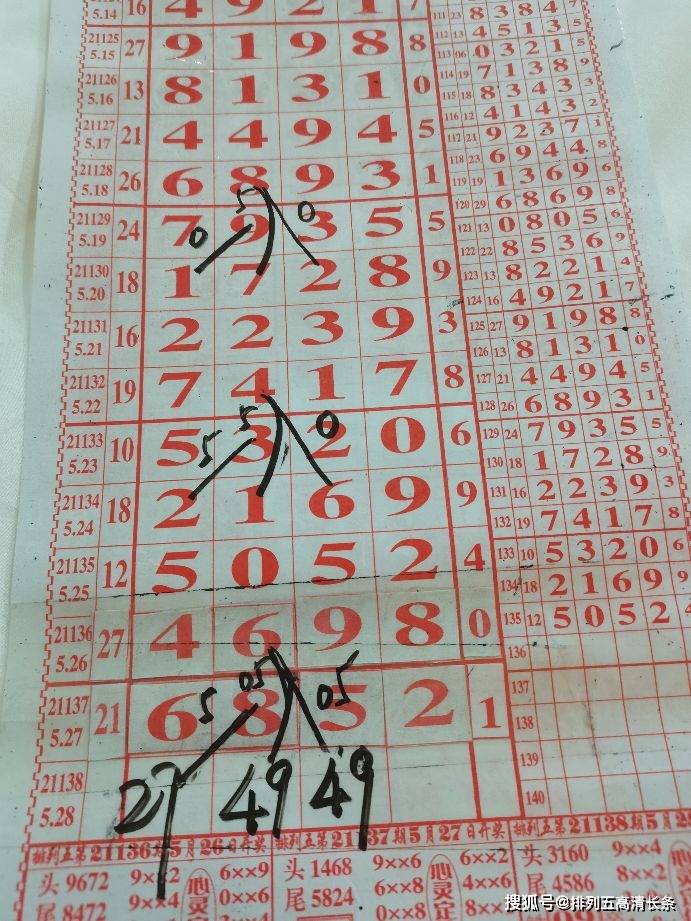 5.14 16 4 9 2 1 7
21125 5.15 27 9 1 9 8 8
21126 5.16 13 8 1 3 1 0
21127 5.17 21 4 4 9 4 5
21128 5.18 26 6 8 9 3 1
5 0
21129 5.19 24 7 9 3 5 5
0
21130 5.20 18 1 7 2 8 9
21131 5.21 16 2 2 3 9 3
21132 5.22 19 7 4 1 7 8
5 0
21133 5.23 10 5 3 2 0 6
5
21134 5.24 18 2 1 6 9 9
21135 5.25 12 5 0 5 2 4
21136 5.26 27 4 6 9 8 0
05 05
21137 5.27 21 6 8 5 2 1
5
21138 5.28
27 49 49
111 23 8 3 8 4 7
112 13 4 5 1 3 5
113 06 0 3 2 1 5
114 19 7 1 3 8 9
115 18 8 3 4 3 3
116 12 4 1 4 3 2
117 21 9 2 3 7 1
118 23 6 9 4 4 8
119 19 1 3 6 9 6
120 29 6 8 6 9 8
121 13 0 8 0 5 6
122 22 8 5 3 6 9
123 13 8 2 2 1 4
124 16 4 9 2 1 7
125 27 9 1 9 8 8
126 13 8 1 3 1 0
127 21 4 4 9 4 5
128 26 6 8 9 3 1
129 24 7 9 3 5 5
130 18 1 7 2 8 9
131 16 2 2 3 9 3
132 19 7 4 1 7 8
133 10 5 3 2 0 6
134 18 2 1 6 9 9
135 12 5 0 5 2 4
136
137
138
139
140
排列五第21136期5月26日开奖
头 9672 6××9
尾 8472 9××4 0××6
心灵
排列五第21137期5月27日开奖
头 1468 9××6 6××2
尾 5824 6××8 4××6
心灵
排列五第21138期5月28
头 3160 9××4
尾 4586 8××2
搜狐号@排列五高清长条